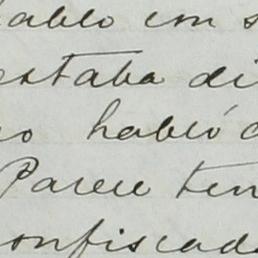 hablo con s
estaba di
no habló c
Parece ten
confiscad